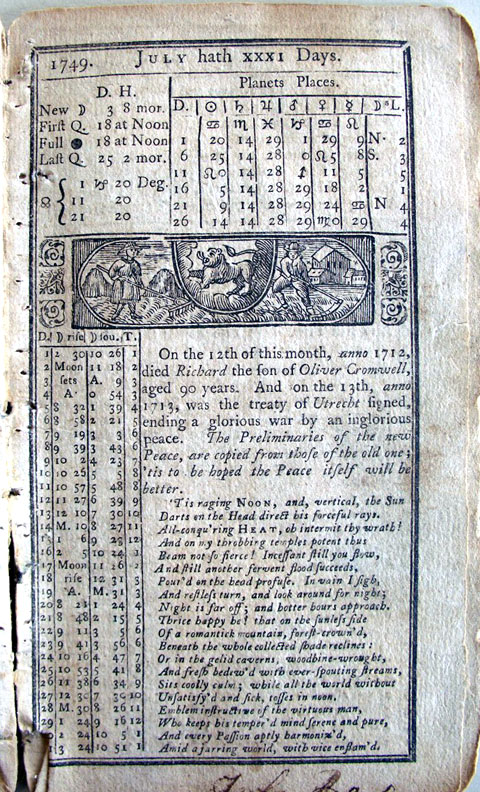 1749. JULY hath XXXI Days.
D. H.
New ☽ 3 8 mor.
Firſt Q. 18 at Noon
Full ● 18 at Noon
Laſt Q. 25 2 mor.
☊ { 1 ♑ 20 Deg.
11 20
21 20
Planets Places.
D. ☉ ♄ ♃ ♂ ♀ ☿ ☽'s L.
♋ ♏ ♓ ♑ ♋ ♌
1 20 14 29 1 29 9 N. 2
6 25 14 28 0 ♌ 5 8 S. 3
11 ♌ 0 14 28 11 5 5
16 5 14 29 18 2 1
21 9 14 28 29 24 ♋ N 4
26 14 14 28 29 ♍ 0 29 4
D. ☽ riſe ☽ ſou. T.
1 2 30 10 26 1
2 Moon 11 18 2
3 ſets A. 9 3
4 A. 0 54 3
5 8 32 1 39 4
6 8 58 2 21 5
7 9 19 3 3 6
8 9 39 3 43 6
9 10 2 4 23 7
10 10 26 5 5 8
11 10 57 5 48 8
12 11 27 6 39 9
13 12 10 7 30 10
14 M. 10 8 27 11
1 6 9 23 12
16 2 5 10 24 1
17 Moon 11 26 2
18 riſe 12 31 3
19 A. M. 31 3
20 8 21 1 24 4
21 8 48 2 15 5
22 9 11 3 5 6
23 9 41 3 56 6
24 10 16 4 47 7
25 10 53 5 41 8
26 11 38 6 34 9
27 12 30 7 30 10
28 M. 30 8 26 11
29 1 24 9 16 12
2 24 10 5 1
3 24 10 51 1
On the 12th of this month, anno 1712,
died Richard the ſon of Oliver Cromwell,
aged 90 years. And on the 13th, anno
1713, was the treaty of Utrecht ſigned,
ending a glorious war by an inglorious
peace. The Preliminaries of the new
Peace, are copied from thoſe of the old one;
'tis to be hoped the Peace itſelf will be
better.
'Tis raging NOON, and, vertical, the Sun
Darts on the Head direct his forceful rays.
All-conqu'ring HEAT, oh intermit thy wrath!
And on my throbbing temples potent thus
Beam not ſo fierce! Inceſſant ſtill you flow,
And ſtill another fervent flood ſucceeds,
Pour'd on the head profuſe. In vain I ſigh,
And reſtleſs turn, and look around for night;
Night is far off; and hotter hours approach.
Thrice happy he! that on the ſunleſs ſide
Of a romantick mountain, foreſt-crown'd,
Beneath the whole collected ſhade reclines:
Or in the gelid caverns, woodbine-wrought,
And freſh bedew'd with ever-ſpouting ſtreams,
Sits coolly calm; while all the world without
Unſatisfy'd and ſick, toſſes in noon.
Emblem inſtructive of the virtuous man,
Who keeps his temper'd mind ſerene and pure,
And every Paſſion aptly harmoniz'd,
Amid a jarring world, with vice enflam'd.